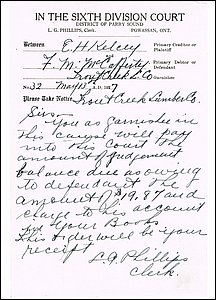 IN THE SIXTH DIVISION COURT
DISTRICT OF PARRY SOUND
L. G. PHILLIPS, Clerk. POWASSAN, ONT.
Between E. H. Kelcey Primary Creditor or Plaintiff
F. M. McCafferty Primary Debtor or Defendant
Trout Creek L. Co Garnishee
No. 32 May 13 A.D. 1917
Please Take Notice, Trout Creek Lumber Co.
Sirs
You as garnishee in
this cause will pay
into this Court the
amount of judgement
balance due as owing
to defendant the
amount of $19.87 and
charge to his account
in your Books
This order will be your
receipt
L G Phillips
Clerk.